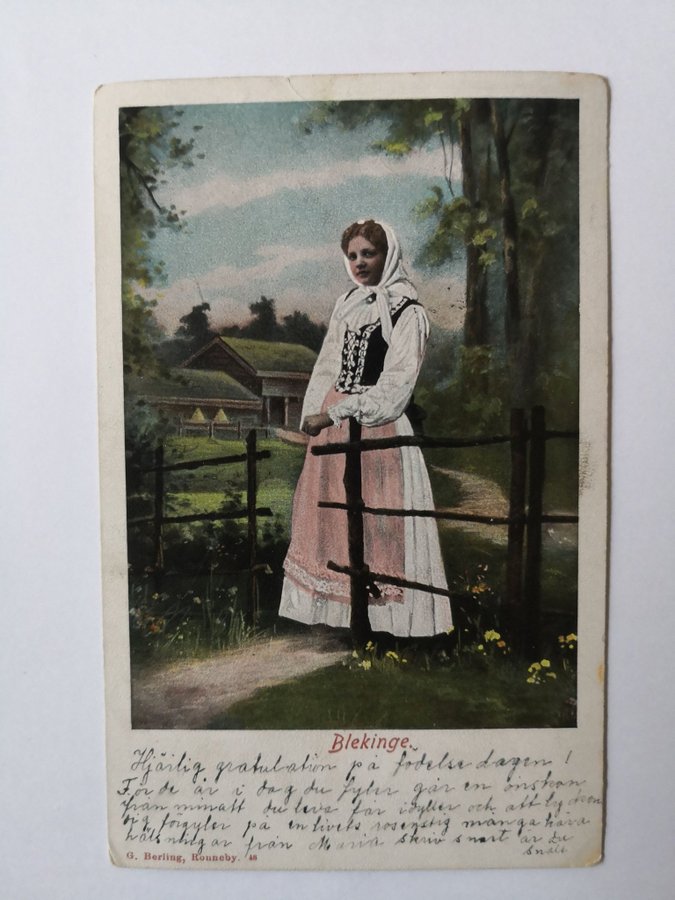 Blekinge.
Hjärlig gratulation på födelsedagen!
För de är i dag du fyler går en önskan
från min att du leva får idyller och att lyckan
dig förgyler på en livets rosenstig många kära
hälsningar från Maria skriv snart är du
snäll
G. Berling, Ronneby. 48